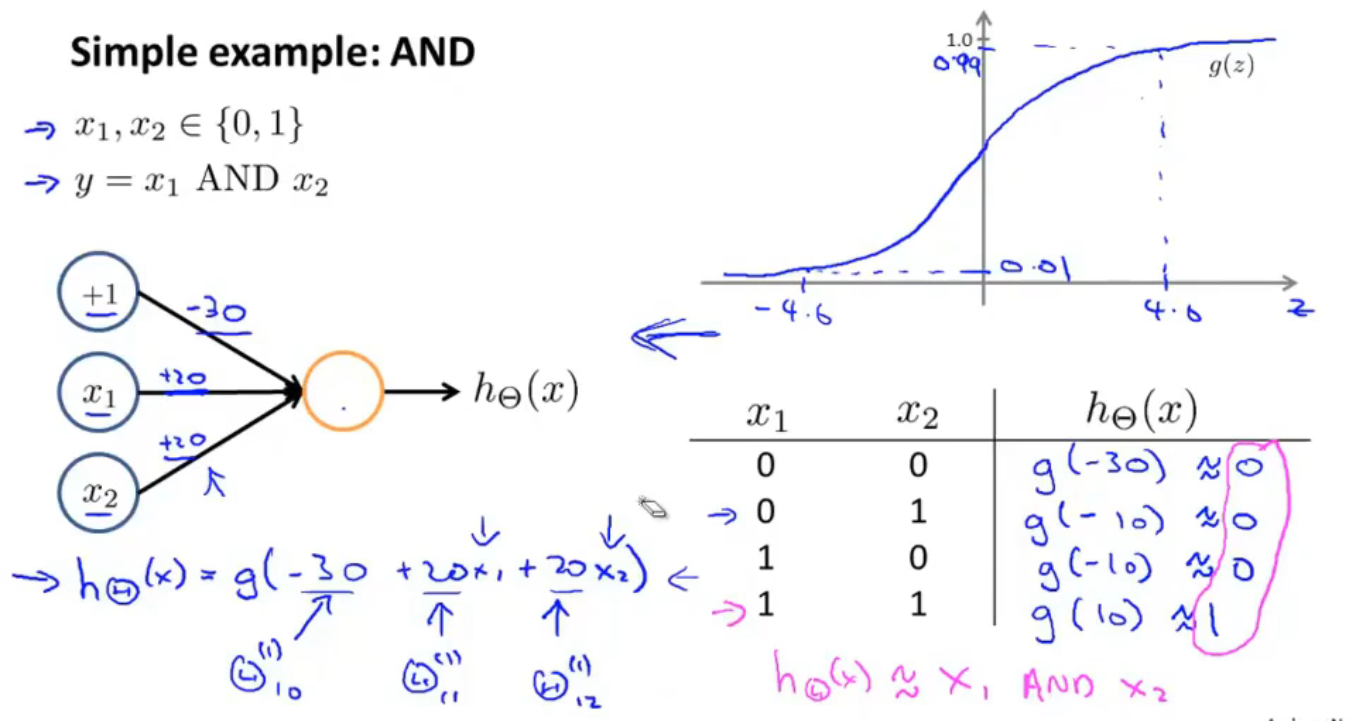 Simple example: AND
→ x₁, x₂ ∈ {0, 1}
→ y = x₁ AND x₂
+1
-30
x₁
+20
x₂
+20
h_Θ(x)
→ h_Θ(x) = g(-30 + 20x₁ + 20x₂) ←
Θ₁₀⁽¹⁾ Θ₁₁⁽¹⁾ Θ₁₂⁽¹⁾
1.0
0.99
g(z)
0.01
-4.6 4.6 z
x₁ x₂ h_Θ(x)
0 0 g(-30) ≈ 0
→ 0 1 g(-10) ≈ 0
1 0 g(-10) ≈ 0
→ 1 1 g(10) ≈ 1
h_Θ(x) ≈ x₁ AND x₂